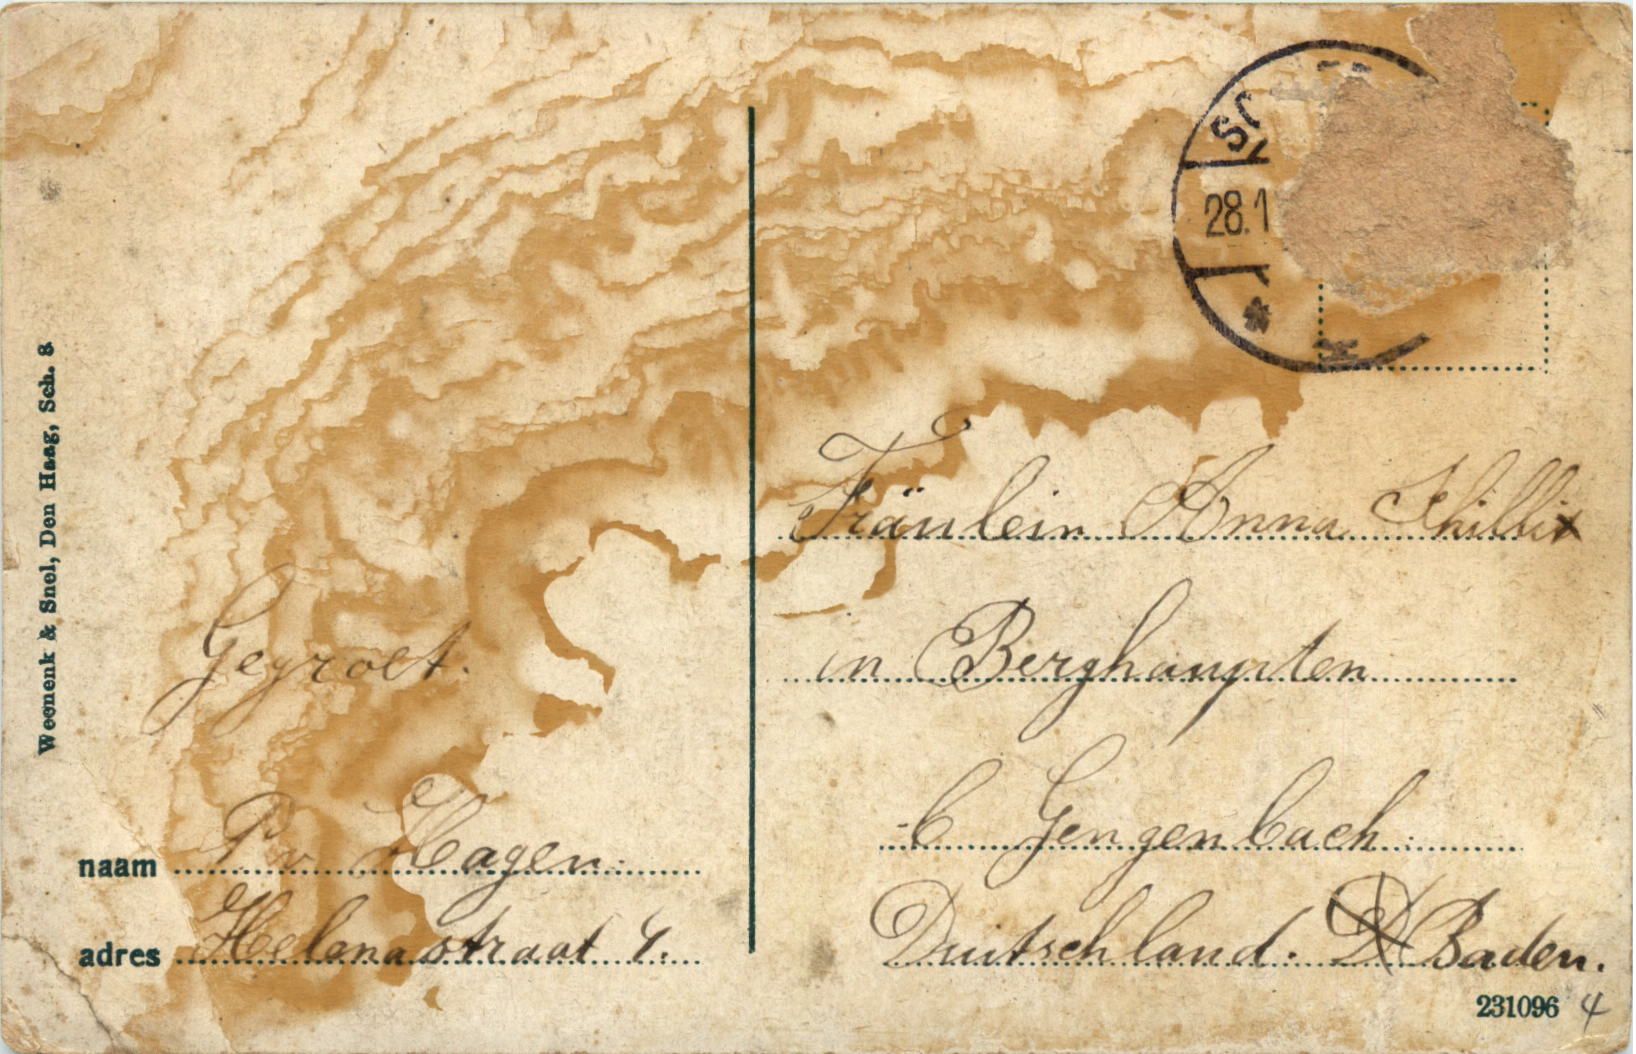 Weenenk & Snel, Den Haag, Sch. 8
28.1
Fräulein Anna
in Berghaupten
b Gengenbach
Duitschland. Baden.
Gegroet.
naam P v Hagen
adres Helenastraat 4.
231096 4